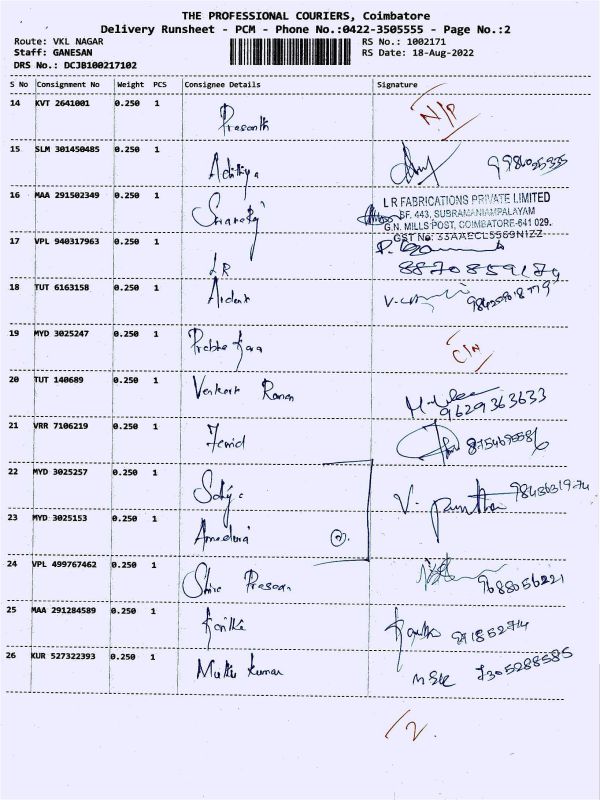 THE PROFESSIONAL COURIERS, Coimbatore
Delivery Runsheet - PCM - Phone No.:0422-3505555 - Page No.:2
Route: VKL NAGAR
Staff: GANESAN
DRS No.: DCJB100217102
RS No.: 1002171
RS Date: 18-Aug-2022
S No Consignment No Weight PCS Consignee Details Signature
14 KVT 2641001 0.250 1 Prasanth N/P
15 SLM 301450485 0.250 1 Adithya
16 MAA 291502349 0.250 1
L R FABRICATIONS PRIVATE LIMITED
SF. 443, SUBRAMANIAMPALAYAM
G.N. MILLS POST, COIMBATORE-641 029.
GST No: 33AAECL5569N1ZZ
17 VPL 940317963 0.250 1 LR
8870859179
18 TUT 6163158 0.250 1 Ardent
19 MYD 3025247 0.250 1 Prabha Kara
20 TUT 140689 0.250 1 Venkat Raman
9629363633
21 VRR 7106219 0.250 1
22 MYD 3025257 0.250 1
23 MYD 3025153 0.250 1 2
24 VPL 499767462 0.250 1
9688056221
25 MAA 291284589 0.250 1
26 KUR 527322393 0.250 1 Muthu Kumar 7305288585
2